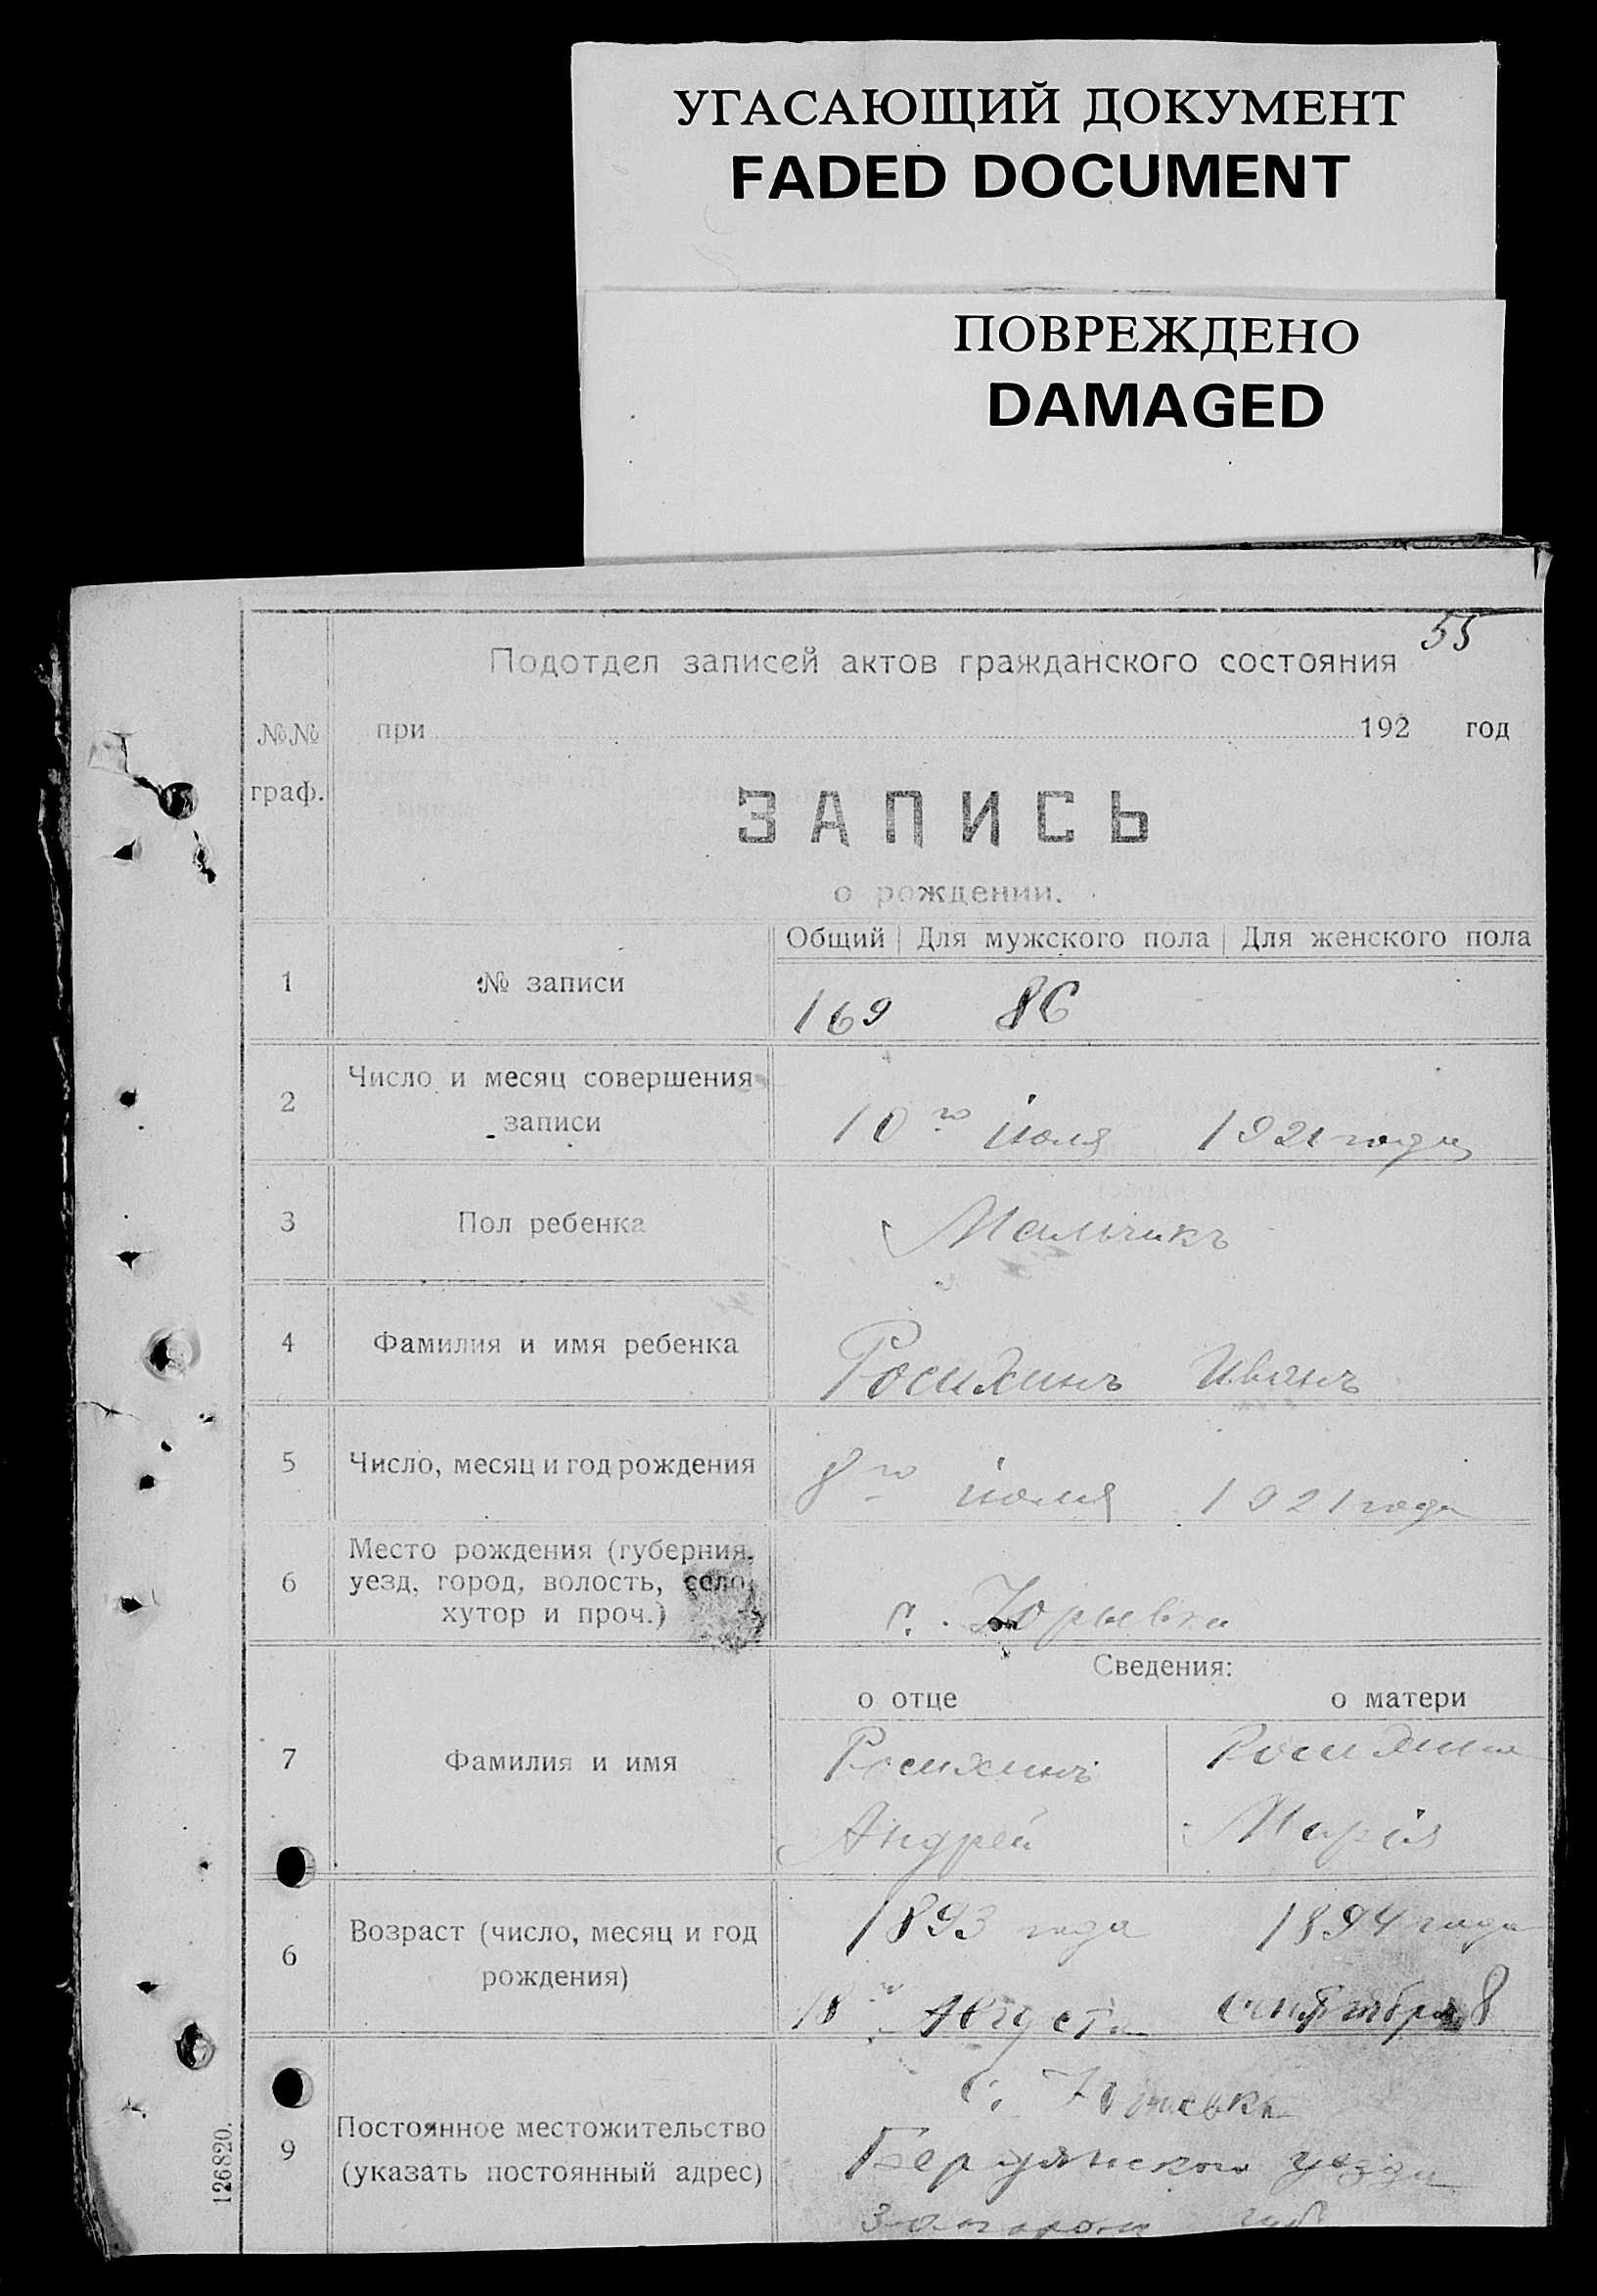 УГАСАЮЩИЙ ДОКУМЕНТ
FADED DOCUMENT
ПОВРЕЖДЕНО
DAMAGED
55
Подотдел записей актов гражданского состояния
№№ граф.
при 192 год
ЗАПИСЬ
о рождении.
Общий Для мужского пола Для женского пола
1 № записи 169 86
2 Число и месяц совершения
записи 10го июля 1921 года
3 Пол ребенка Мальчикъ
4 Фамилия и имя ребенка Росихинъ Иванъ
5 Число, месяц и год рождения 8го июля 1921 года
Место рождения (губерния,
6 уезд, город, волость, село,
хутор и проч.) с.
Сведения:
о отце о матери
7 Фамилия и имя Росихинъ Росихина
Андрей Марія
6 Возраст (число, месяц и год 1893 года 1894 года
рождения) 18го Августа сентября 8
с.
9 Постоянное местожительство Бердянскаго уезда
(указать постоянный адрес)
губ
126820.